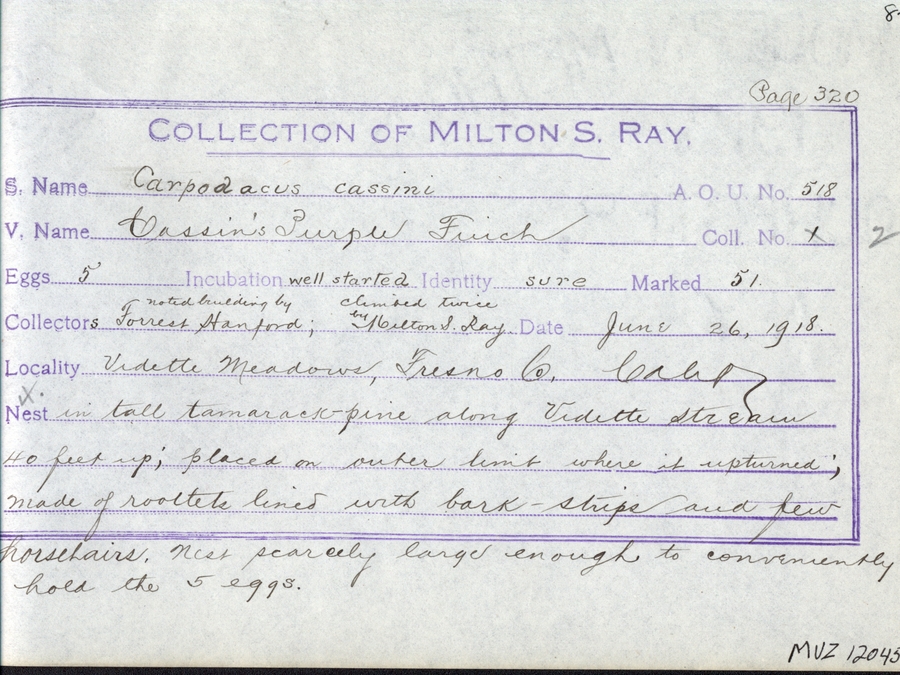 8
Page 320
COLLECTION OF MILTON S. RAY.
S. Name Carpodacus cassini A. O. U. No. 518
V. Name Cassin's Purple Finch Coll. No. X 2
Eggs 5 Incubation well started Identity sure Marked 51.
noted building by climbed twice
Collectors Forrest Hanford; by Milton S. Ray Date June 26, 1918.
Locality Vidette Meadows, Fresno Co. Calif
X.
Nest in tall tamarack-pine along Vidette stream
40 feet up; placed on outer limb where it upturned;
made of rootlets lined with bark-strips and few
horsehairs. Nest scarcely large enough to conveniently
hold the 5 eggs.
MVZ 12045